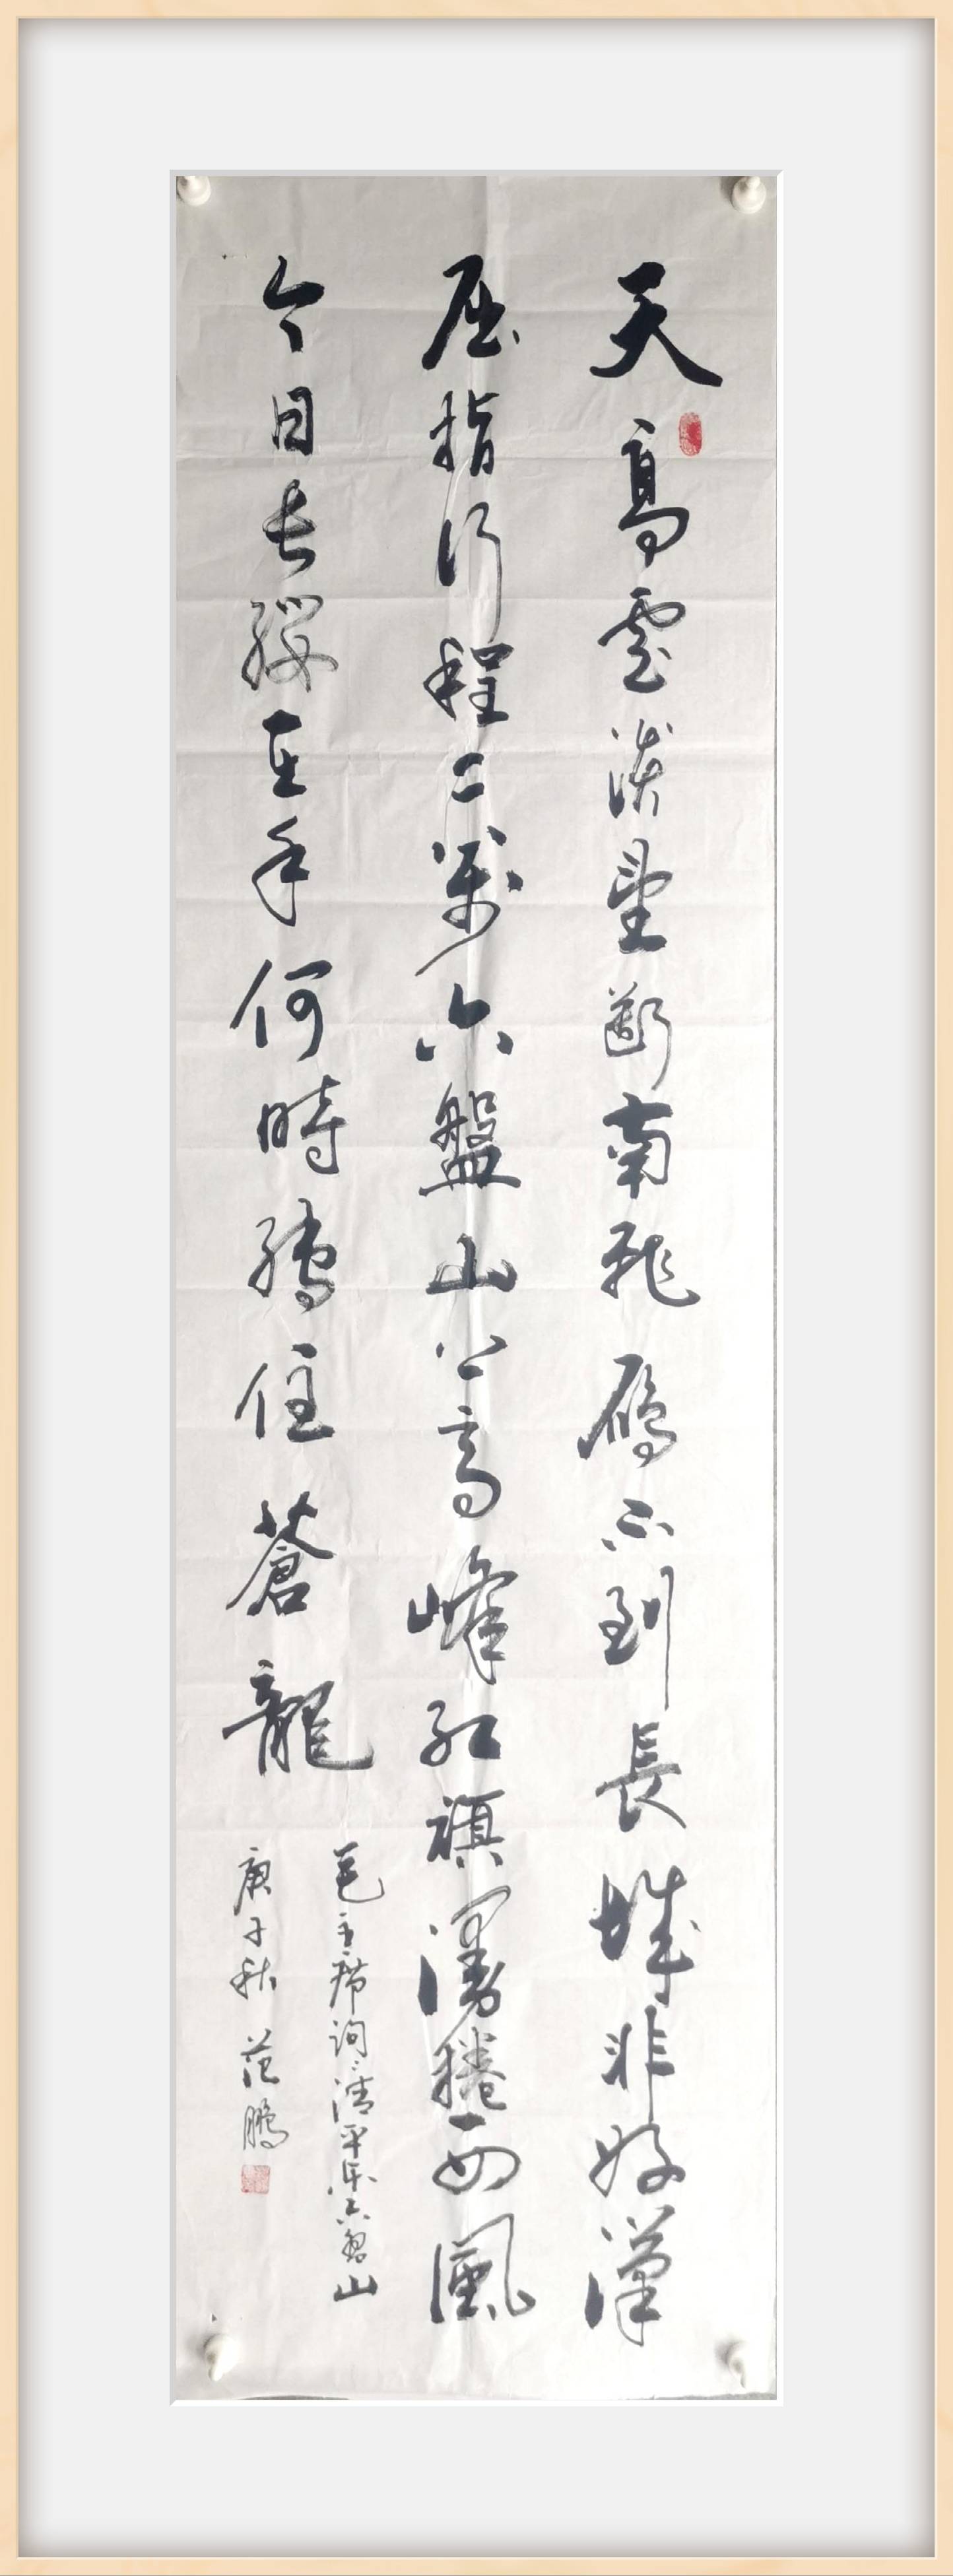 天高雲淡望斷南飛雁不到長城非好漢
屈指行程二萬六盤山上高峰紅旗漫捲西風
今日長纓在手何時縛住蒼龍
毛主席詞清平樂六盤山
庚子秋 范鵬